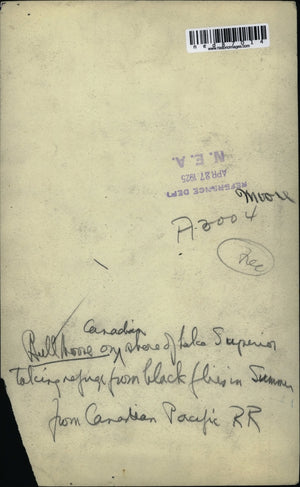 www.historicimages.com
REFERENCE DEPT
APR 27 1925
N. E. A.
Moose
A-3004
Rec
Canadian
Bull Moose on shore of Lake Superior
taking refuge from black flies in Summer
from Canadian Pacific RR